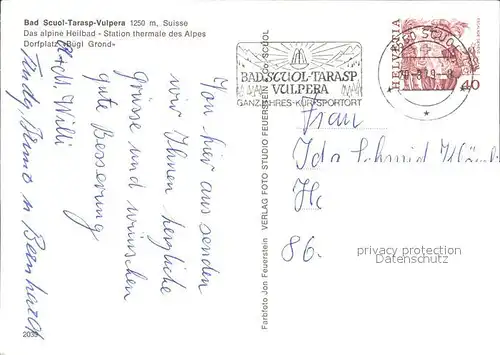 Bad Scuol-Tarasp-Vulpera 1250 m, Suisse
Das alpine Heilbad - Station thermale des Alpes
Dorfplatz «Bügl Grond»
Von hier aus senden
wir Ihnen herzliche
Grüsse und wünschen
gute Besserung
Willi
2039
Farbfoto Jon Feuerstein VERLAG FOTO STUDIO FEUERSTEIN SCUOL
BAD SCUOL-TARASP
VULPERA
GANZJAHRES-KUR-SPORTORT
SCUOL
HELVETIA
40
Frau
Ida Schmid
86.
privacy protection
Datenschutz